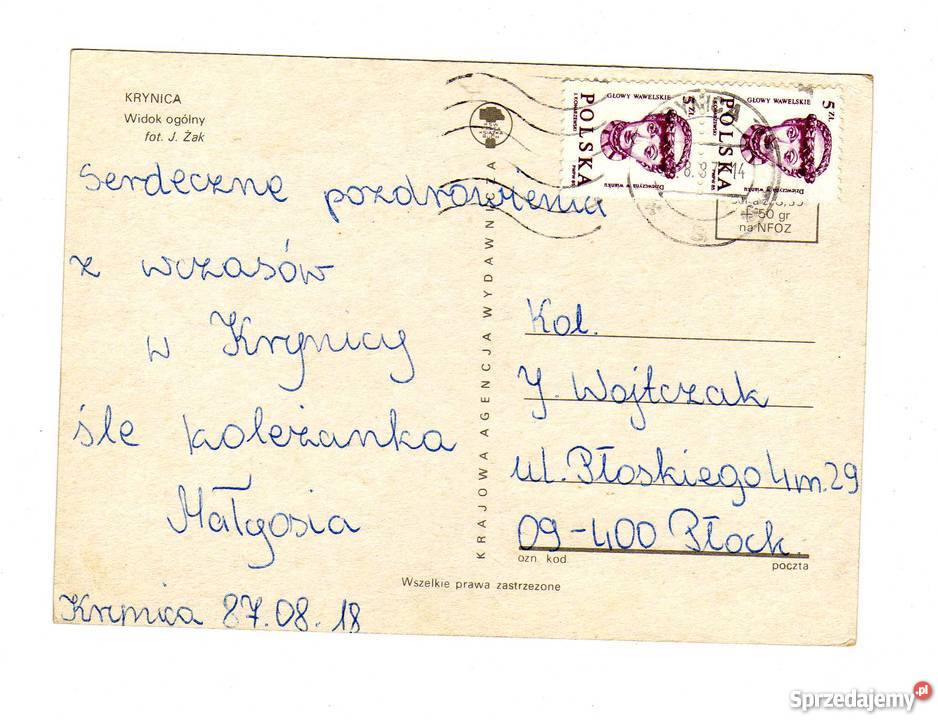 KRYNICA
Widok ogólny
fot. J. Żak
Serdeczne pozdrowienia
z wczasów
w Krynicy
śle koleżanka
Małgosia
Krynica 87.08.18
KRAJOWA AGENCJA WYDAWNICZA
Wszelkie prawa zastrzeżone
5 ZŁ
GŁOWY WAWELSKIE
POLSKA
Dziewczyna w wianku
5 ZŁ
GŁOWY WAWELSKIE
POLSKA
Dziewczyna w wianku
+ 50 gr
na NFOZ
Kol.
J. Wojtczak
ul. Płoskiego 4 m. 29
09-400 Płock.
ozn. kod.
poczta
Sprzedajemy.pl